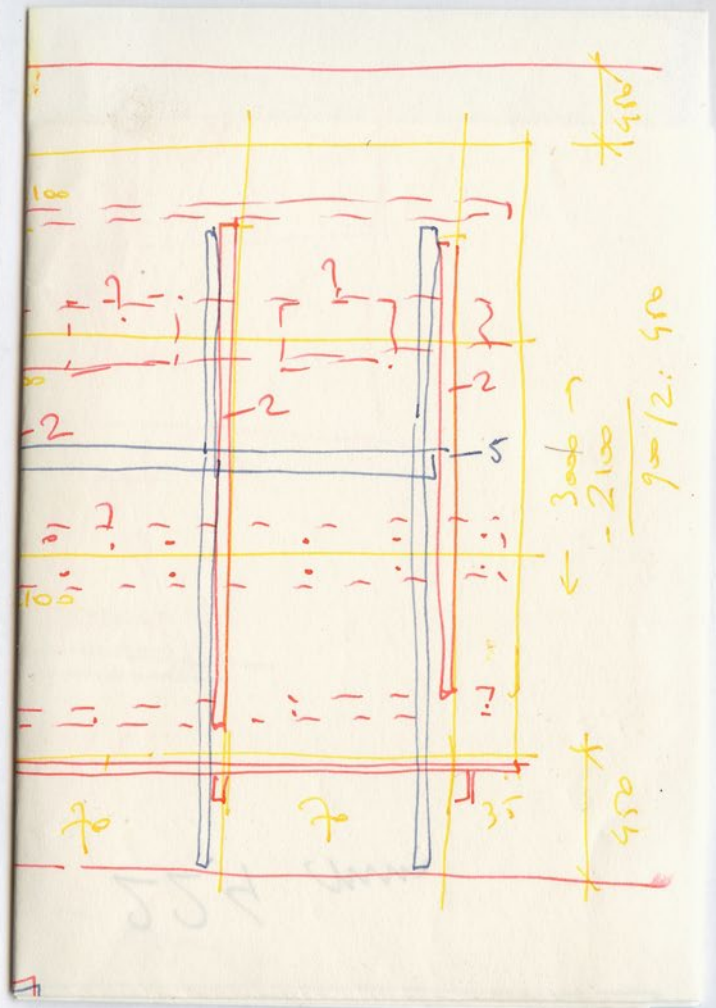 450
100
2
2
2
5
← 3000 →
- 2100
900/2: 450
100
70
70
35
450